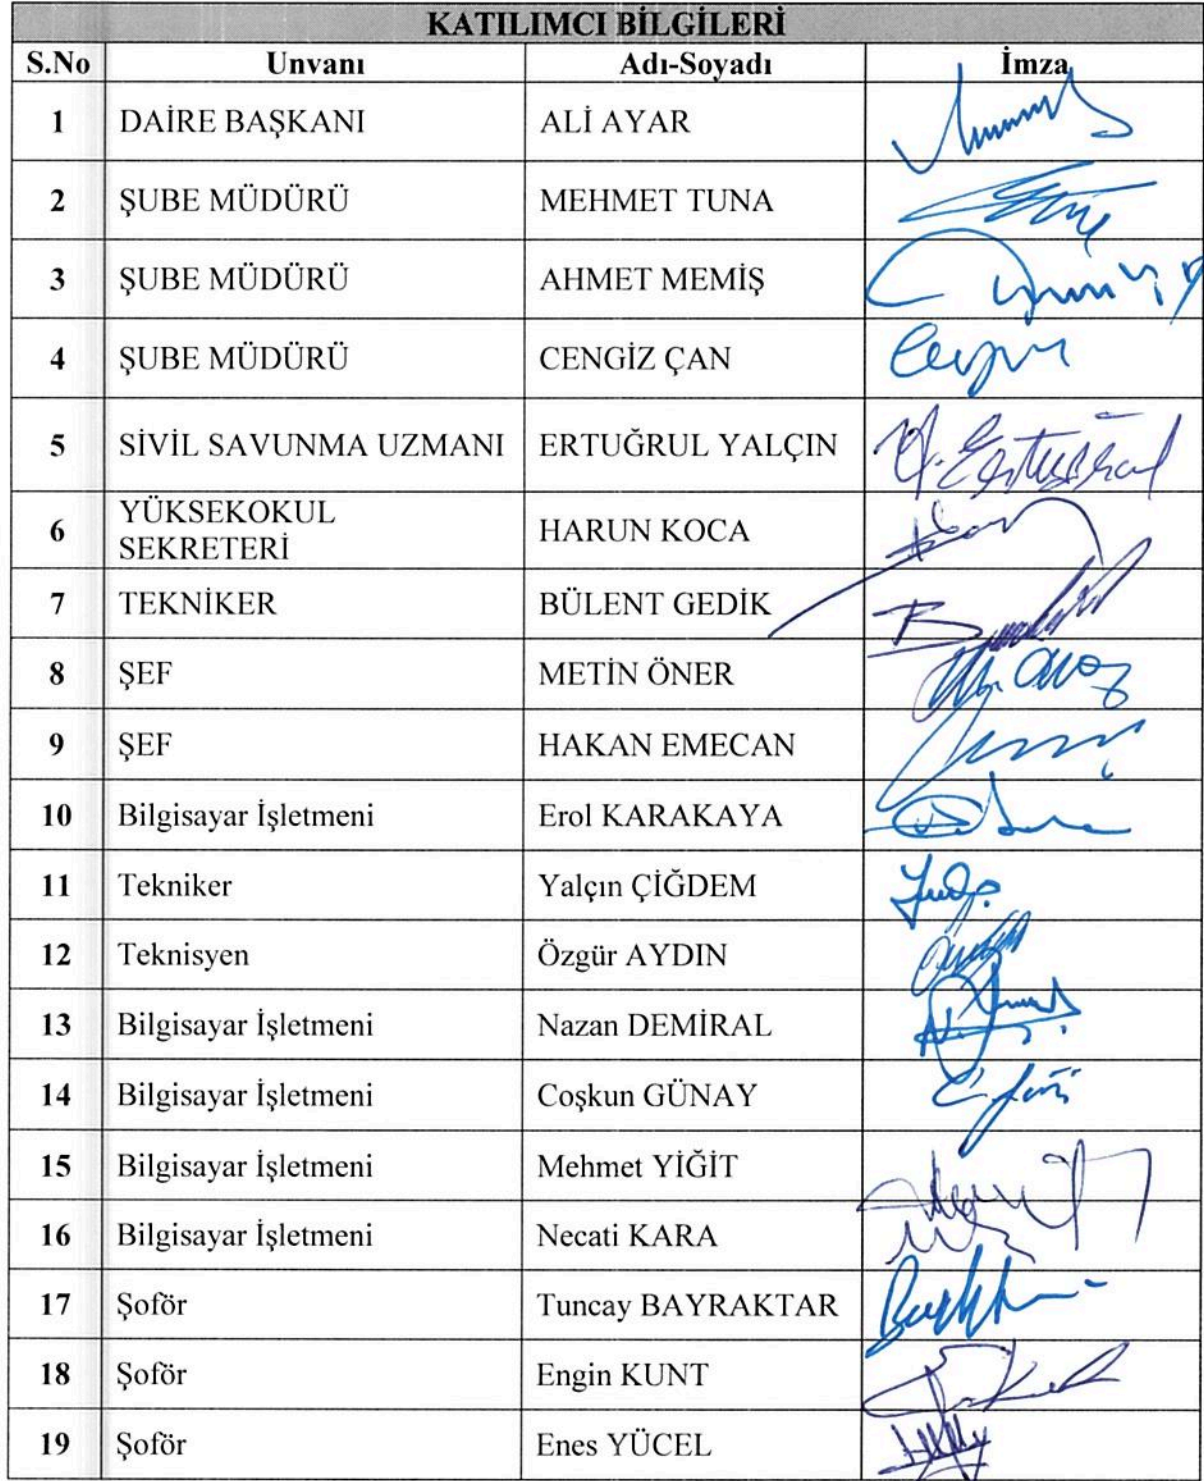 KATILIMCI BİLGİLERİ
S.No Unvanı Adı-Soyadı İmza
1 DAİRE BAŞKANI ALİ AYAR
2 ŞUBE MÜDÜRÜ MEHMET TUNA
3 ŞUBE MÜDÜRÜ AHMET MEMİŞ
4 ŞUBE MÜDÜRÜ CENGİZ ÇAN
5 SİVİL SAVUNMA UZMANI ERTUĞRUL YALÇIN
6 YÜKSEKOKUL
SEKRETERİ HARUN KOCA
7 TEKNİKER BÜLENT GEDİK
8 ŞEF METİN ÖNER
9 ŞEF HAKAN EMECAN
10 Bilgisayar İşletmeni Erol KARAKAYA
11 Tekniker Yalçın ÇİĞDEM
12 Teknisyen Özgür AYDIN
13 Bilgisayar İşletmeni Nazan DEMİRAL
14 Bilgisayar İşletmeni Coşkun GÜNAY
15 Bilgisayar İşletmeni Mehmet YİĞİT
16 Bilgisayar İşletmeni Necati KARA
17 Şoför Tuncay BAYRAKTAR
18 Şoför Engin KUNT
19 Şoför Enes YÜCEL